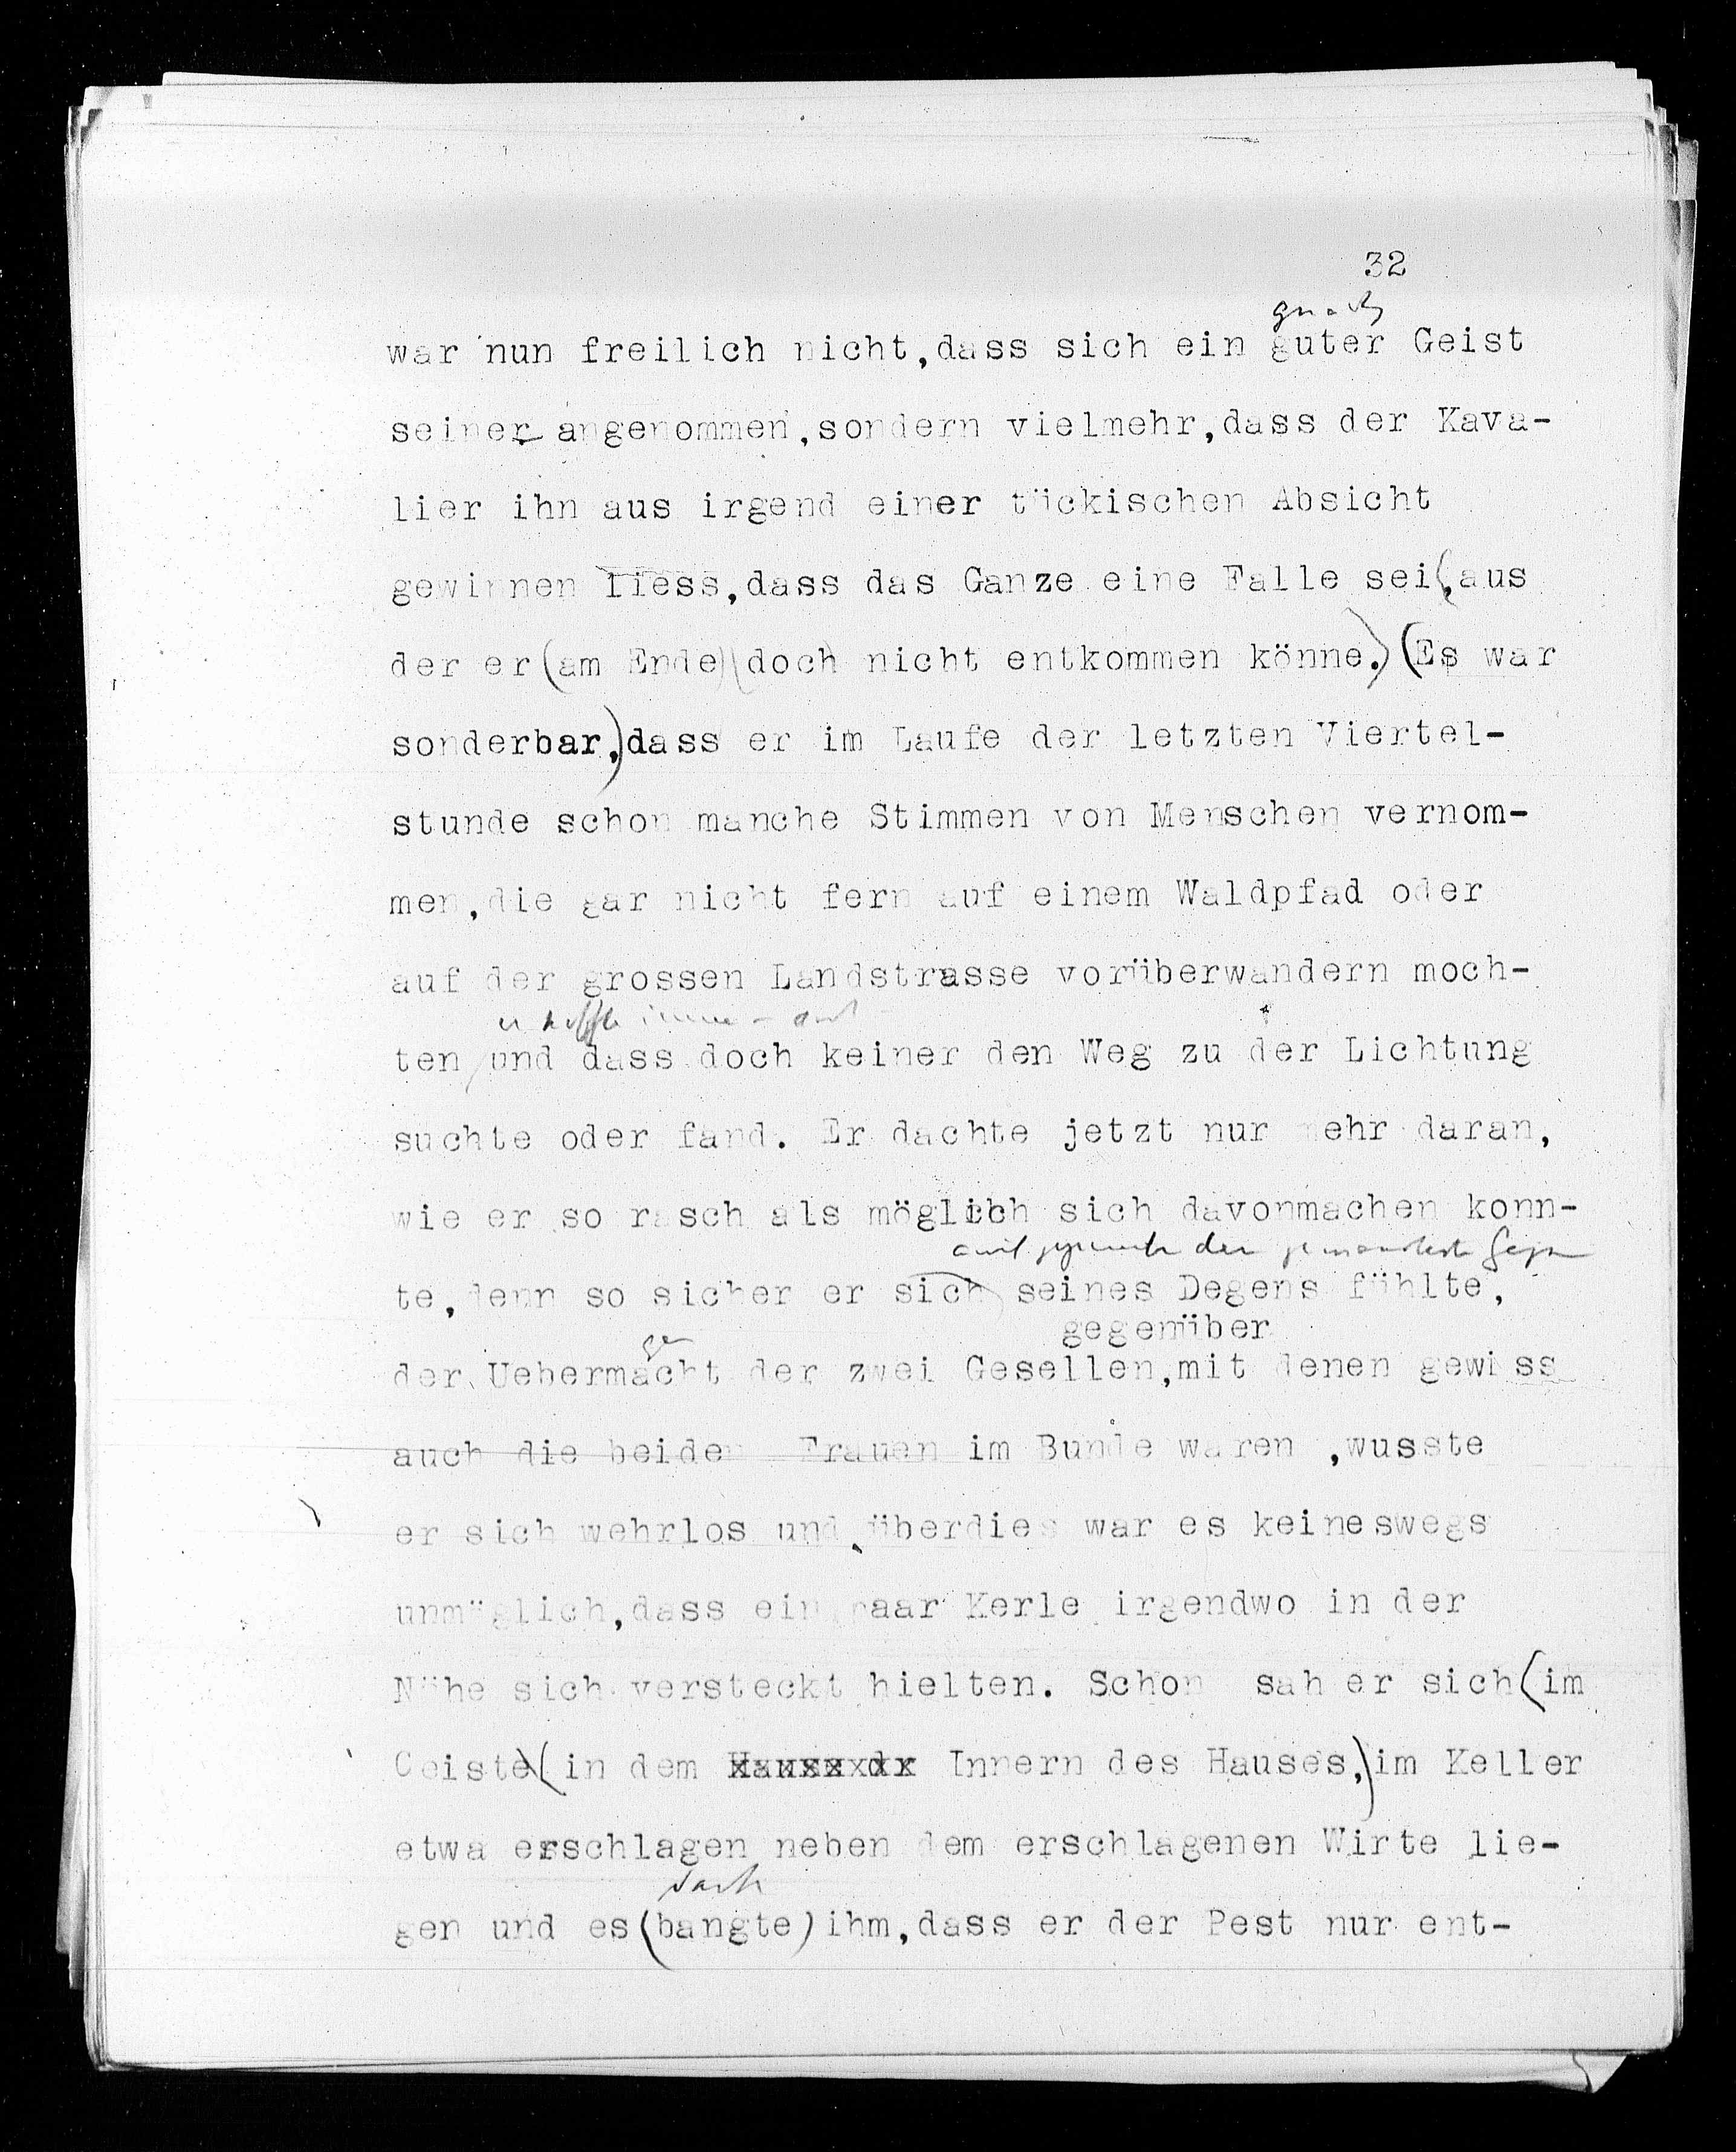 32
war nun freilich nicht,dass sich ein guter Geist
seiner angenommen,sondern vielmehr,dass der Kava-
lier ihn aus irgend einer tückischen Absicht
gewinnen liess,dass das Ganze eine Falle sei(,aus
der er(am Ende)(doch nicht entkommen könne.) (Es war
sonderbar,)dass er im Laufe der letzten Viertel-
stunde schon manche Stimmen von Menschen vernom-
men,die gar nicht fern auf einem Waldpfad oder
auf der grossen Landstrasse vorüberwandern moch-
ten und dass doch keiner den Weg zu der Lichtung
suchte oder fand. Er dachte jetzt nur mehr daran,
wie er so rasch als möglich sich davonmachen konn-
te,denn so sicher er sich seines Degens fühlte,
gegenüber
der Uebermacht der zwei Gesellen,mit denen gewiss
auch die beiden Frauen im Bunde waren ,wusste
er sich wehrlos und überdies war es keineswegs
unmöglich,dass ein paar Kerle irgendwo in der
Nähe sich versteckt hielten. Schon sah er sich(im
Geiste)(in dem Hausexdr Innern des Hauses,)im Keller
etwa erschlagen neben dem erschlagenen Wirte lie-
gen und es(bangte)ihm,dass er der Pest nur ent-